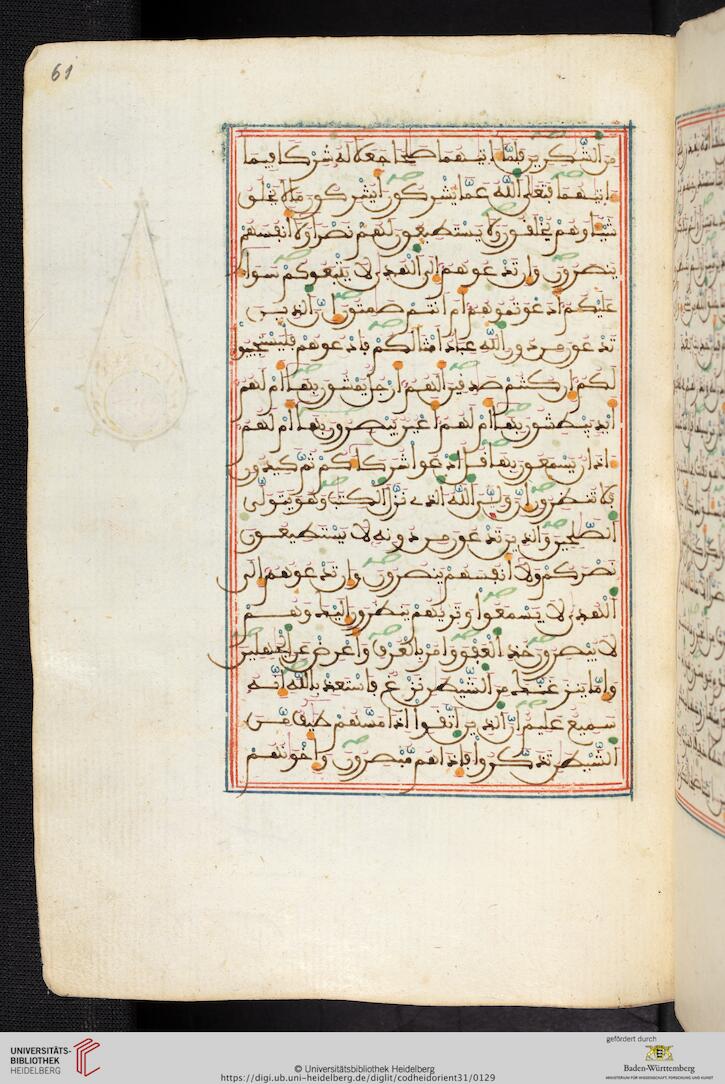 61
من الشكرين فلما اتيهما صلحا جعلا له شركا فيما
اتيهما فتعلى الله عما يشركون ايشركون ما لا يخلق
شيا وهم يخلقون ولا يستطيعون لهم نصرا ولا انفسهم
ينصرون وان تدعوهم الى الهدى لا يتبعوكم سواء
عليكم ادعوتموهم ام انتم صمتون ان الذين
تدعون من دون الله عباد امثالكم فادعوهم فليستجيبوا
لكم ان كنتم صدقين الهم ارجل يمشون بها ام لهم
ايد يبطشون بها ام لهم اعين يبصرون بها ام لهم
اذان يسمعون بها قل ادعوا شركاءكم ثم كيدون
فلا تنظرون ان ولي الله الذي نزل الكتب وهو يتولى
الصلحين والذين تدعون من دونه لا يستطيعون
نصركم ولا انفسهم ينصرون وان تدعوهم الى
الهدى لا يسمعوا وتريهم ينظرون اليك وهم
لا يبصرون خذ العفو وامر بالعرف واعرض عن الجهلين
واما ينزغنك من الشيطن نزغ فاستعذ بالله انه
سميع عليم ان الذين اتقوا اذا مسهم طيف من
الشيطن تذكروا فاذا هم مبصرون واخونهم
UNIVERSITÄTS-
BIBLIOTHEK
HEIDELBERG
© Universitätsbibliothek Heidelberg
https://digi.ub.uni-heidelberg.de/diglit/codheidorient31/0129
gefördert durch
Baden-Württemberg
MINISTERIUM FÜR WISSENSCHAFT, FORSCHUNG UND KUNST